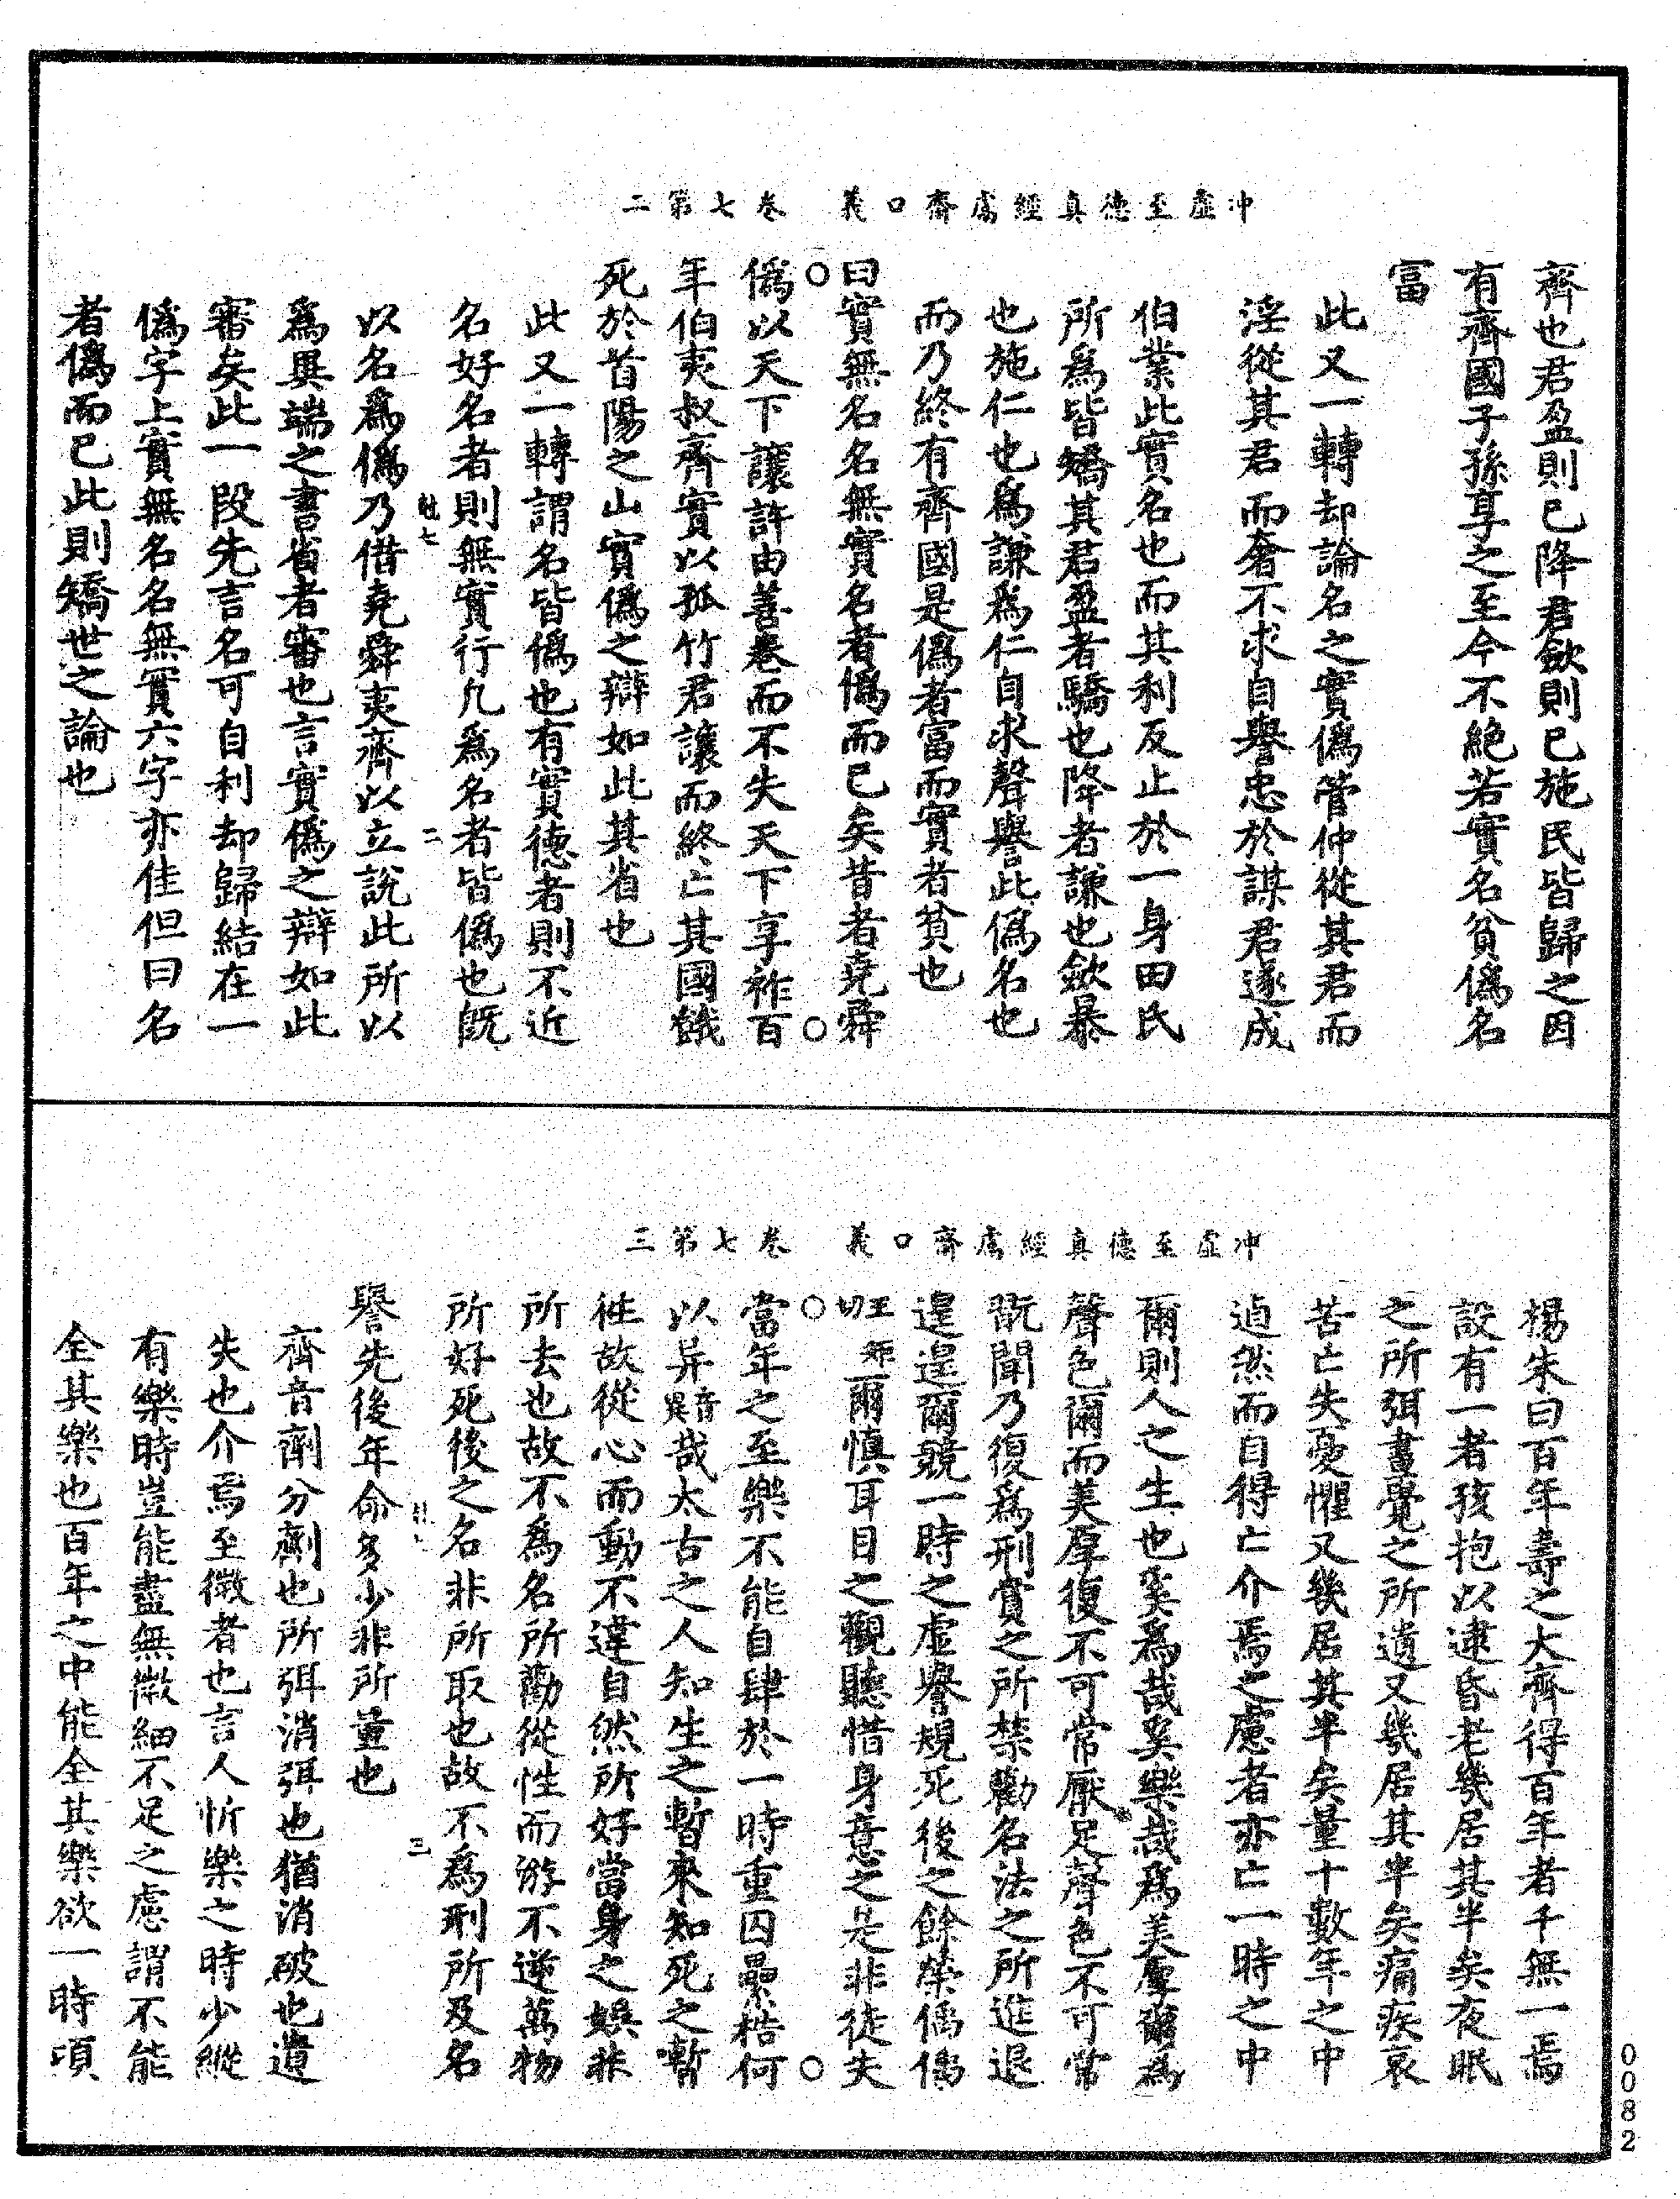 冲虛至德真經鬳齋口義　卷七第二
齊也君盈則已降君歛則已施民皆歸之因
有齊國子孫享之至今不絶若實名貧僞名
富
此又一轉却論名之實僞管仲從其君而
淫從其君而奢不求自譽忠於謀君遂成
伯業此實名也而其利反止於一身田氏
所爲皆矯其君盈者驕也降者謙也歛暴
也施仁也爲謙爲仁自求聲譽此僞名也
而乃終有齊國是僞者富而實者貧也
曰實無名名無實名者僞而已矣昔者堯舜
僞以天下讓許由善卷而不失天下享祚百
年伯夷叔齊實以孤竹君讓而終亡其國餓
死於首陽之山實僞之辯如此其省也
此又一轉謂名皆僞也有實德者則不近
名好名者則無實行凡爲名者皆僞也旣
魁七　二
以名爲僞乃借堯舜夷齊以立說此所以
爲異端之書省者審也言實僞之辯如此
審矣此一段先言名可自利却歸結在一
僞字上實無名名無實六字亦佳但曰名
者僞而已此則矯世之論也
冲虛至德真經鬳齋口義　卷七第三
楊朱曰百年壽之大齊得百年者千無一焉
設有一者孩抱以逮昏老幾居其半矣夜眠
之所弭晝覺之所遺又幾居其半矣痛疾哀
苦亡失憂懼又幾居其半矣量十數年之中
逌然而自得亡介焉之慮者亦亡一時之中
爾則人之生也奚爲哉奚樂哉爲美厚爾爲
聲色爾而美厚復不可常厭足聲色不可常
翫聞乃復爲刑賞之所禁勸名法之所進退
遑遑爾競一時之虛譽規死後之餘榮偊偊
切爾慎耳目之觀聽惜身意之是非徒失
當年之至樂不能自肆於一時重囚纍梏何
以异音異哉太古之人知生之暫來知死之暫
徃故從心而動不違自然所好當身之娛非
所去也故不爲名所勸從性而游不逆萬物
所好死後之名非所取也故不爲刑所及名
三
譽先後年命多少非所量也
齊音劑分劑也所弭消弭也猶消破也遺
失也介焉至微者也言人忻樂之時少縱
有樂時豈能盡無微細不足之慮謂不能
全其樂也百年之中能全其樂欲一時頃
0082